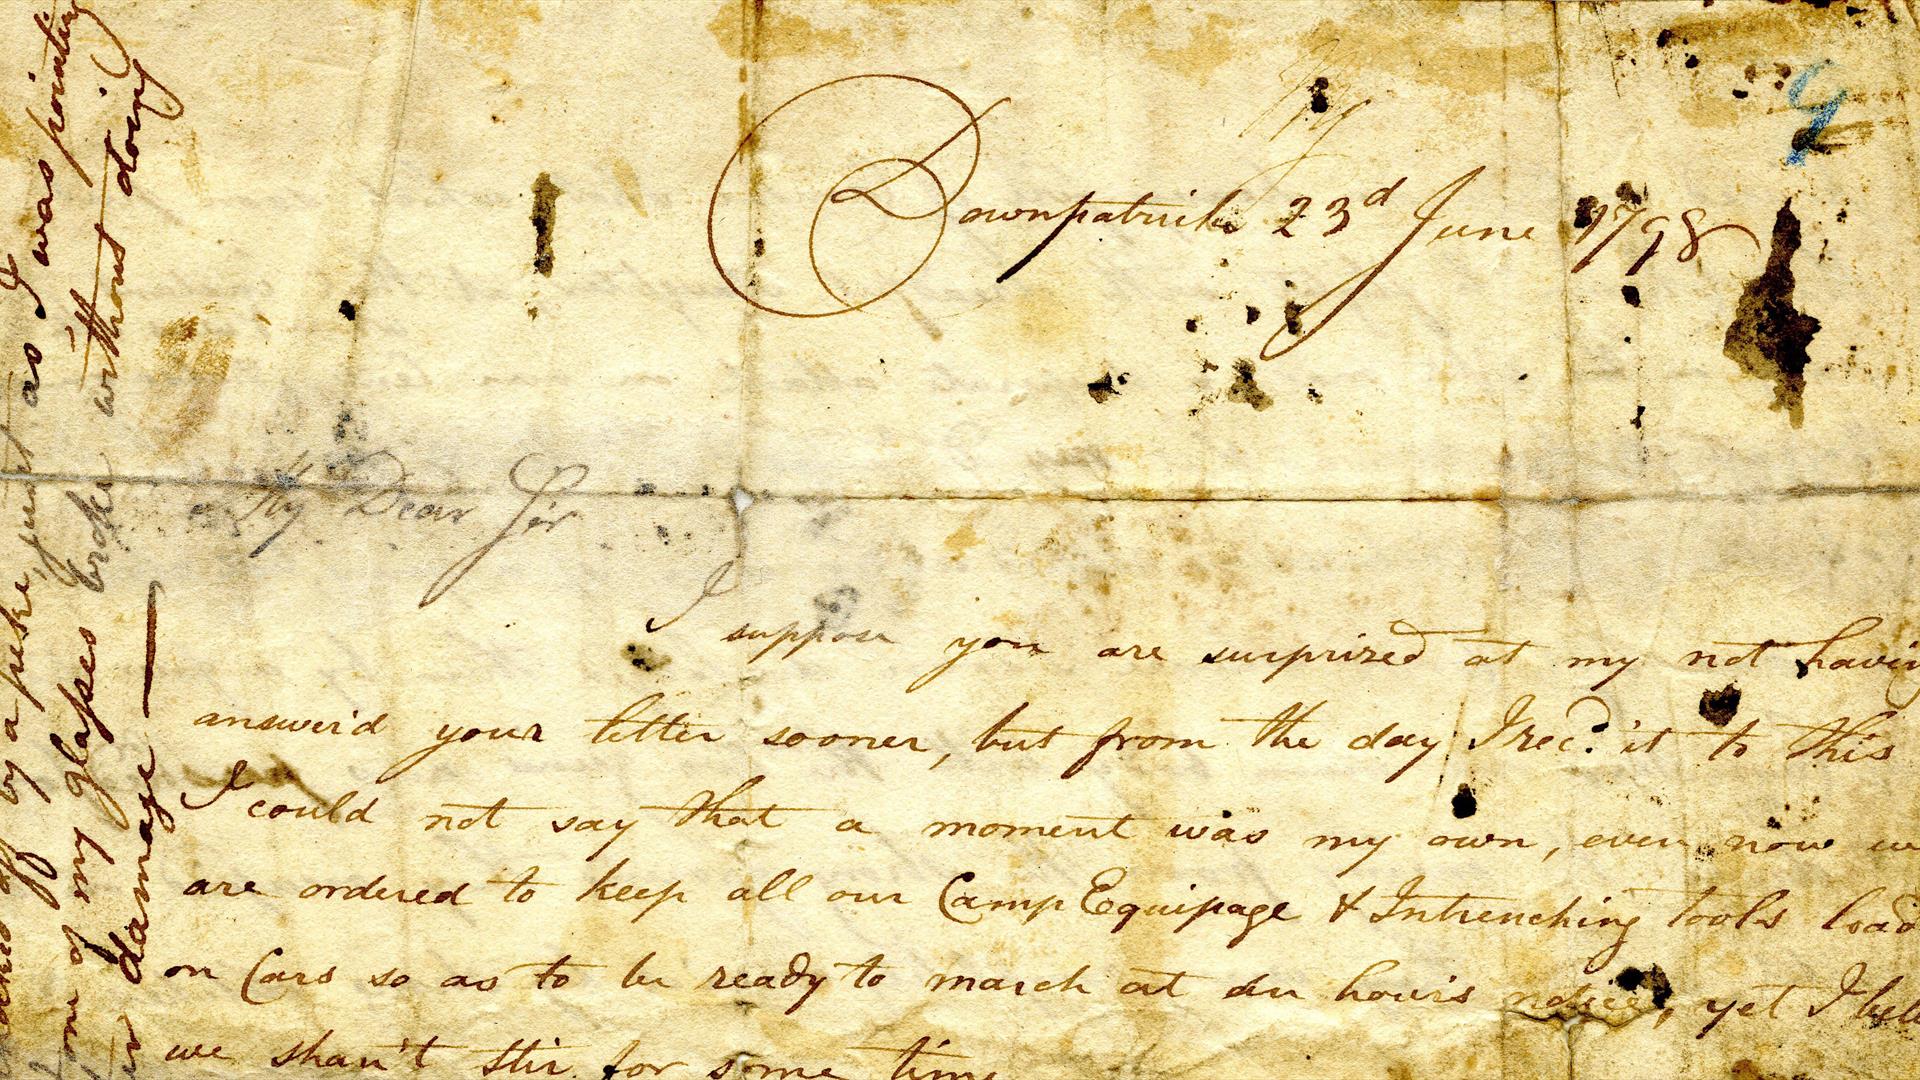 Downpatrick 23d June 1798
My Dear Sir
I suppose you are surprized at my not having
answer'd your letter sooner, but from the day I recd. it to this
I could not say that a moment was my own, even now we
are ordered to keep all our Camp Equipage & Intrenching tools load
on Cars so as to be ready to march at an hour's notice, yet I
we shan't stir for some time
off by a pike, just as I was pointing
one of my glasses broke without doing
damage —